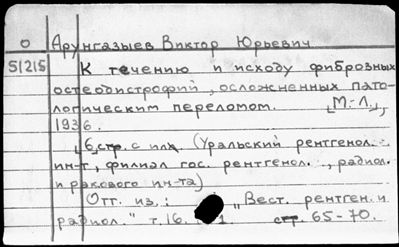 О Арунгазыев Виктор Юрьевич
51215 К течению и исходу фиброзных
остеодистрофий, осложненных пато-
логическим переломом. [М.-Л.],
1936.
[6] стр. с илл. (Уральский рентгенол.
ин-т, филиал гос. рентгенол., радиол.
и ракового ин-та)
Отт. из.: "Вест. рентген. и
радиол." т. 16. 1 стр. 65-70.